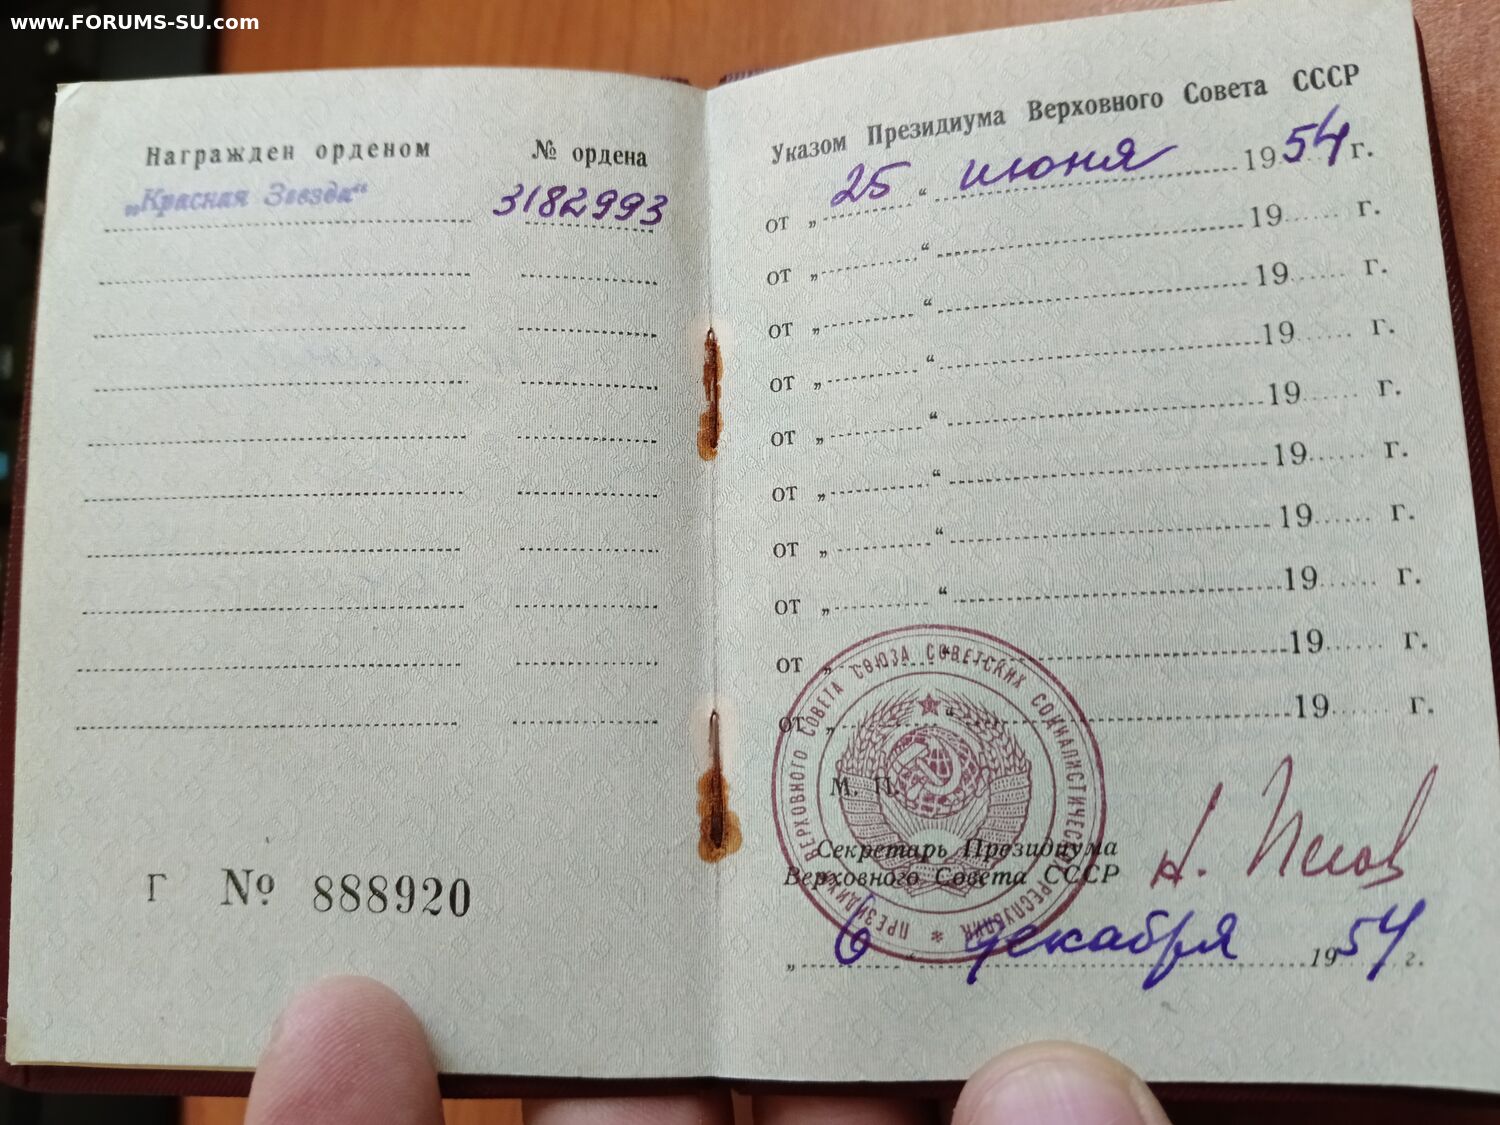 www.FORUMS-SU.com
Награжден орденом № ордена
„Красная Звезда“ 3182993
Г № 888920
Указом Президиума Верховного Совета СССР
от „ 25 “ июня 1954 г.
от „ “ 19 г.
от „ “ 19 г.
от „ “ 19 г.
от „ “ 19 г.
от „ “ 19 г.
от „ “ 19 г.
от „ “ 19 г.
от „ “ 19 г.
от „ “ 19 г.
М. П.
ПРЕЗИДИУМ ВЕРХОВНОГО СОВЕТА СОЮЗА СОВЕТСКИХ СОЦИАЛИСТИЧЕСКИХ РЕСПУБЛИК
Секретарь Президиума
Верховного Совета СССР
„ 6 “ декабря 1954 г.